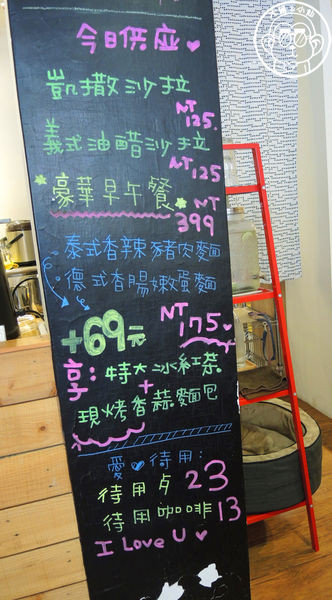 今日供应
凱撒沙拉
NT
125.
義式油醋沙拉
NT 125
豪華早午餐
NT
399
泰式香辣豬肉麵
德式香腸嫩蛋麵
NT
175
+69元
享: 特大冰紅茶
+
現烤香蒜麵包
愛 待用:
待用歺 23
待用咖啡 13
I Love U